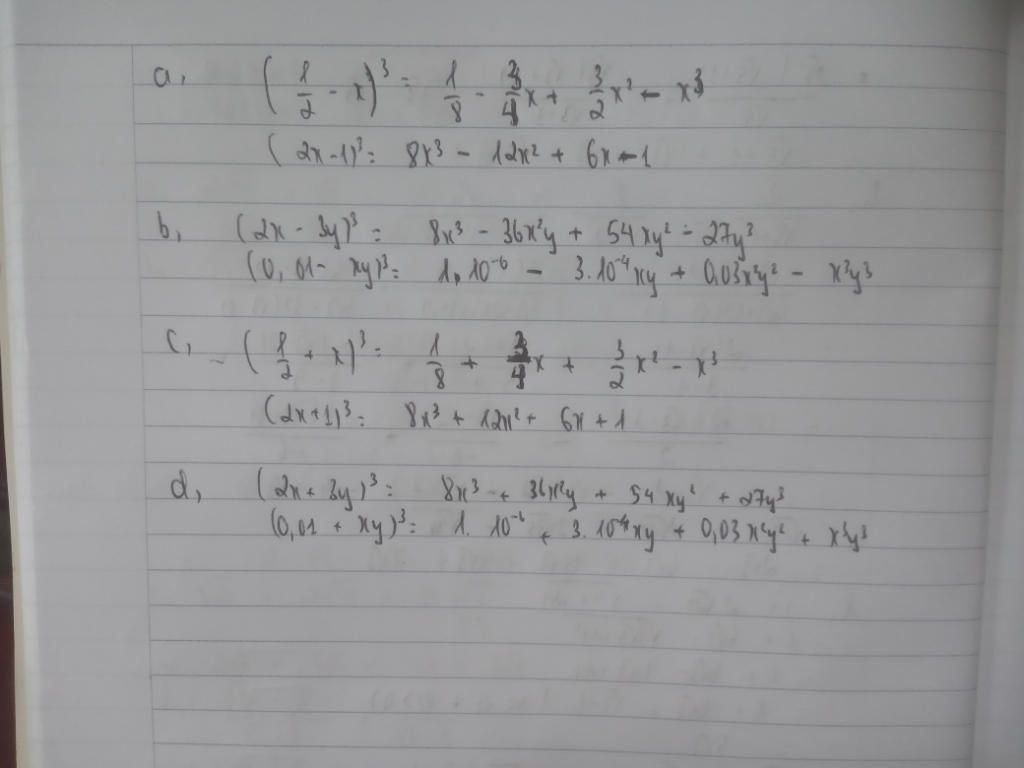 a, (1/2 - x)³ = 1/8 - 3/4x + 3/2x² - x³
(2x-1)³ = 8x³ - 12x² + 6x - 1
b, (2x - 3y)³ = 8x³ - 36x²y + 54xy² - 27y³
(0,01 - xy)³ = 1.10⁻⁶ - 3.10⁻⁴xy + 0,03x²y² - x³y³
c, (1/2 + x)³ = 1/8 + 3/4x + 3/2x² - x³
(2x+1)³ = 8x³ + 12x² + 6x + 1
d, (2x + 3y)³ = 8x³ + 36x²y + 54xy² + 27y³
(0,01 + xy)³ = 1.10⁻⁶ + 3.10⁻⁴xy + 0,03x²y² + x³y³